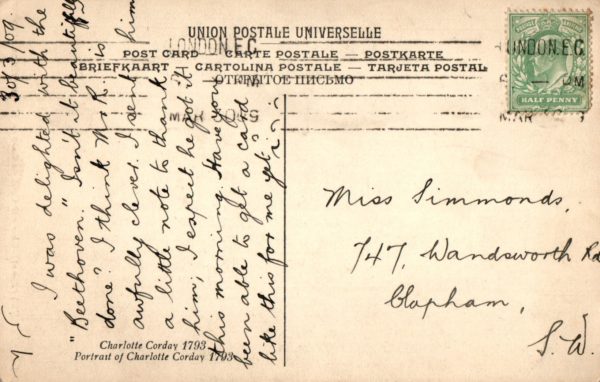 UNION POSTALE UNIVERSELLE
POST CARD — CARTE POSTALE — POSTKARTE
BRIEFKAART — CARTOLINA POSTALE — TARJETA POSTAL
ОТКРЫТОЕ ПИСЬМО
LONDON. E.C.
MAR 30 09
LONDON. E.C.
PM
MAR
HALF PENNY
30/3/09
I was delighted with the
"Beethoven." Isn't it beautifully
done? I think Mr R. is
awfully clever. I sent him
a little note to thank
him, I expect he got it
this morning. Have you
been able to get a card
like this for me yet?
Miss Simmonds,
747, Wandsworth Rd
Clapham,
S.W.
Charlotte Corday 1793
Portrait of Charlotte Corday 1793